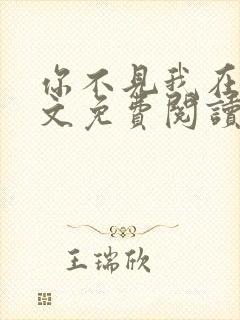 你不見我在
文免費閱讀
王瑞欣